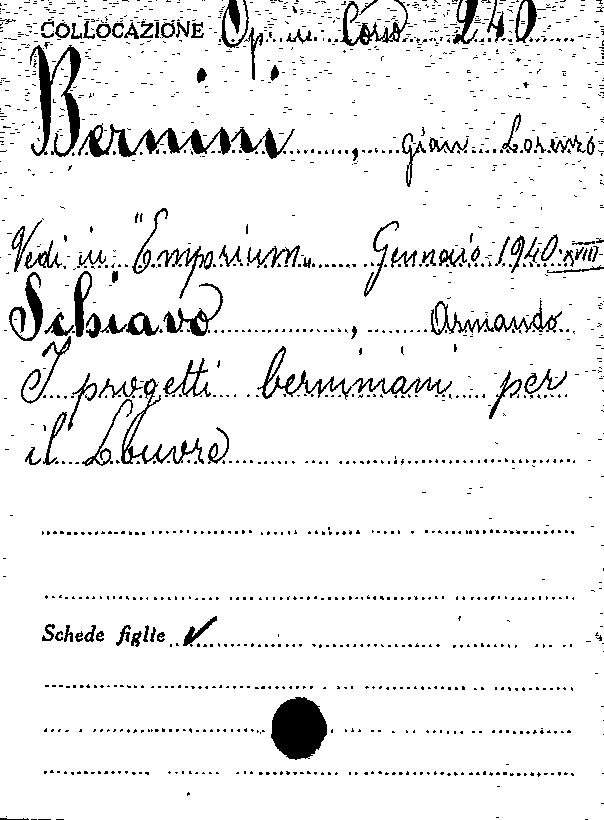 COLLOCAZIONE Op. in Corso 240
Bernini, Gian Lorenzo
Vedi in "Emporium" Gennaio 1940-XVIII
Schiavo, Armando
I progetti berniniani per
il Louvre
Schede figlie ✓